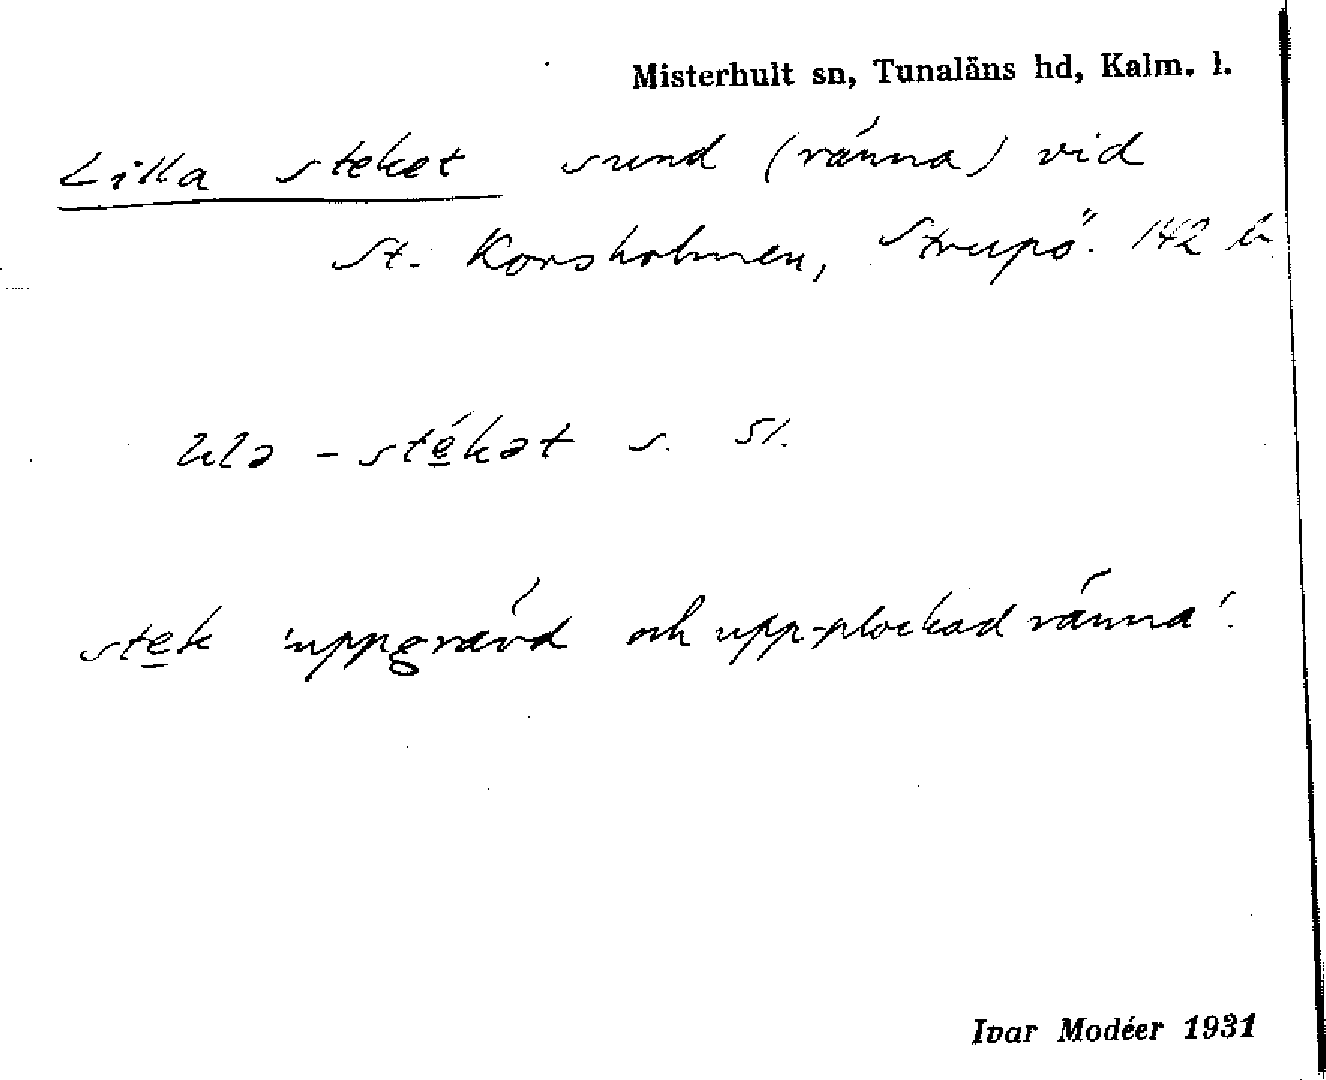 Misterhult sn, Tunaläns hd, Kalm. l.
Lilla steket sund (ränna) vid
St. Korsholmen, Strupö. 142 b
lilə - sté̲kət s. 51.
ste̲k 'uppgrävd och upp-plockad ränna'.
Ivar Modéer 1931